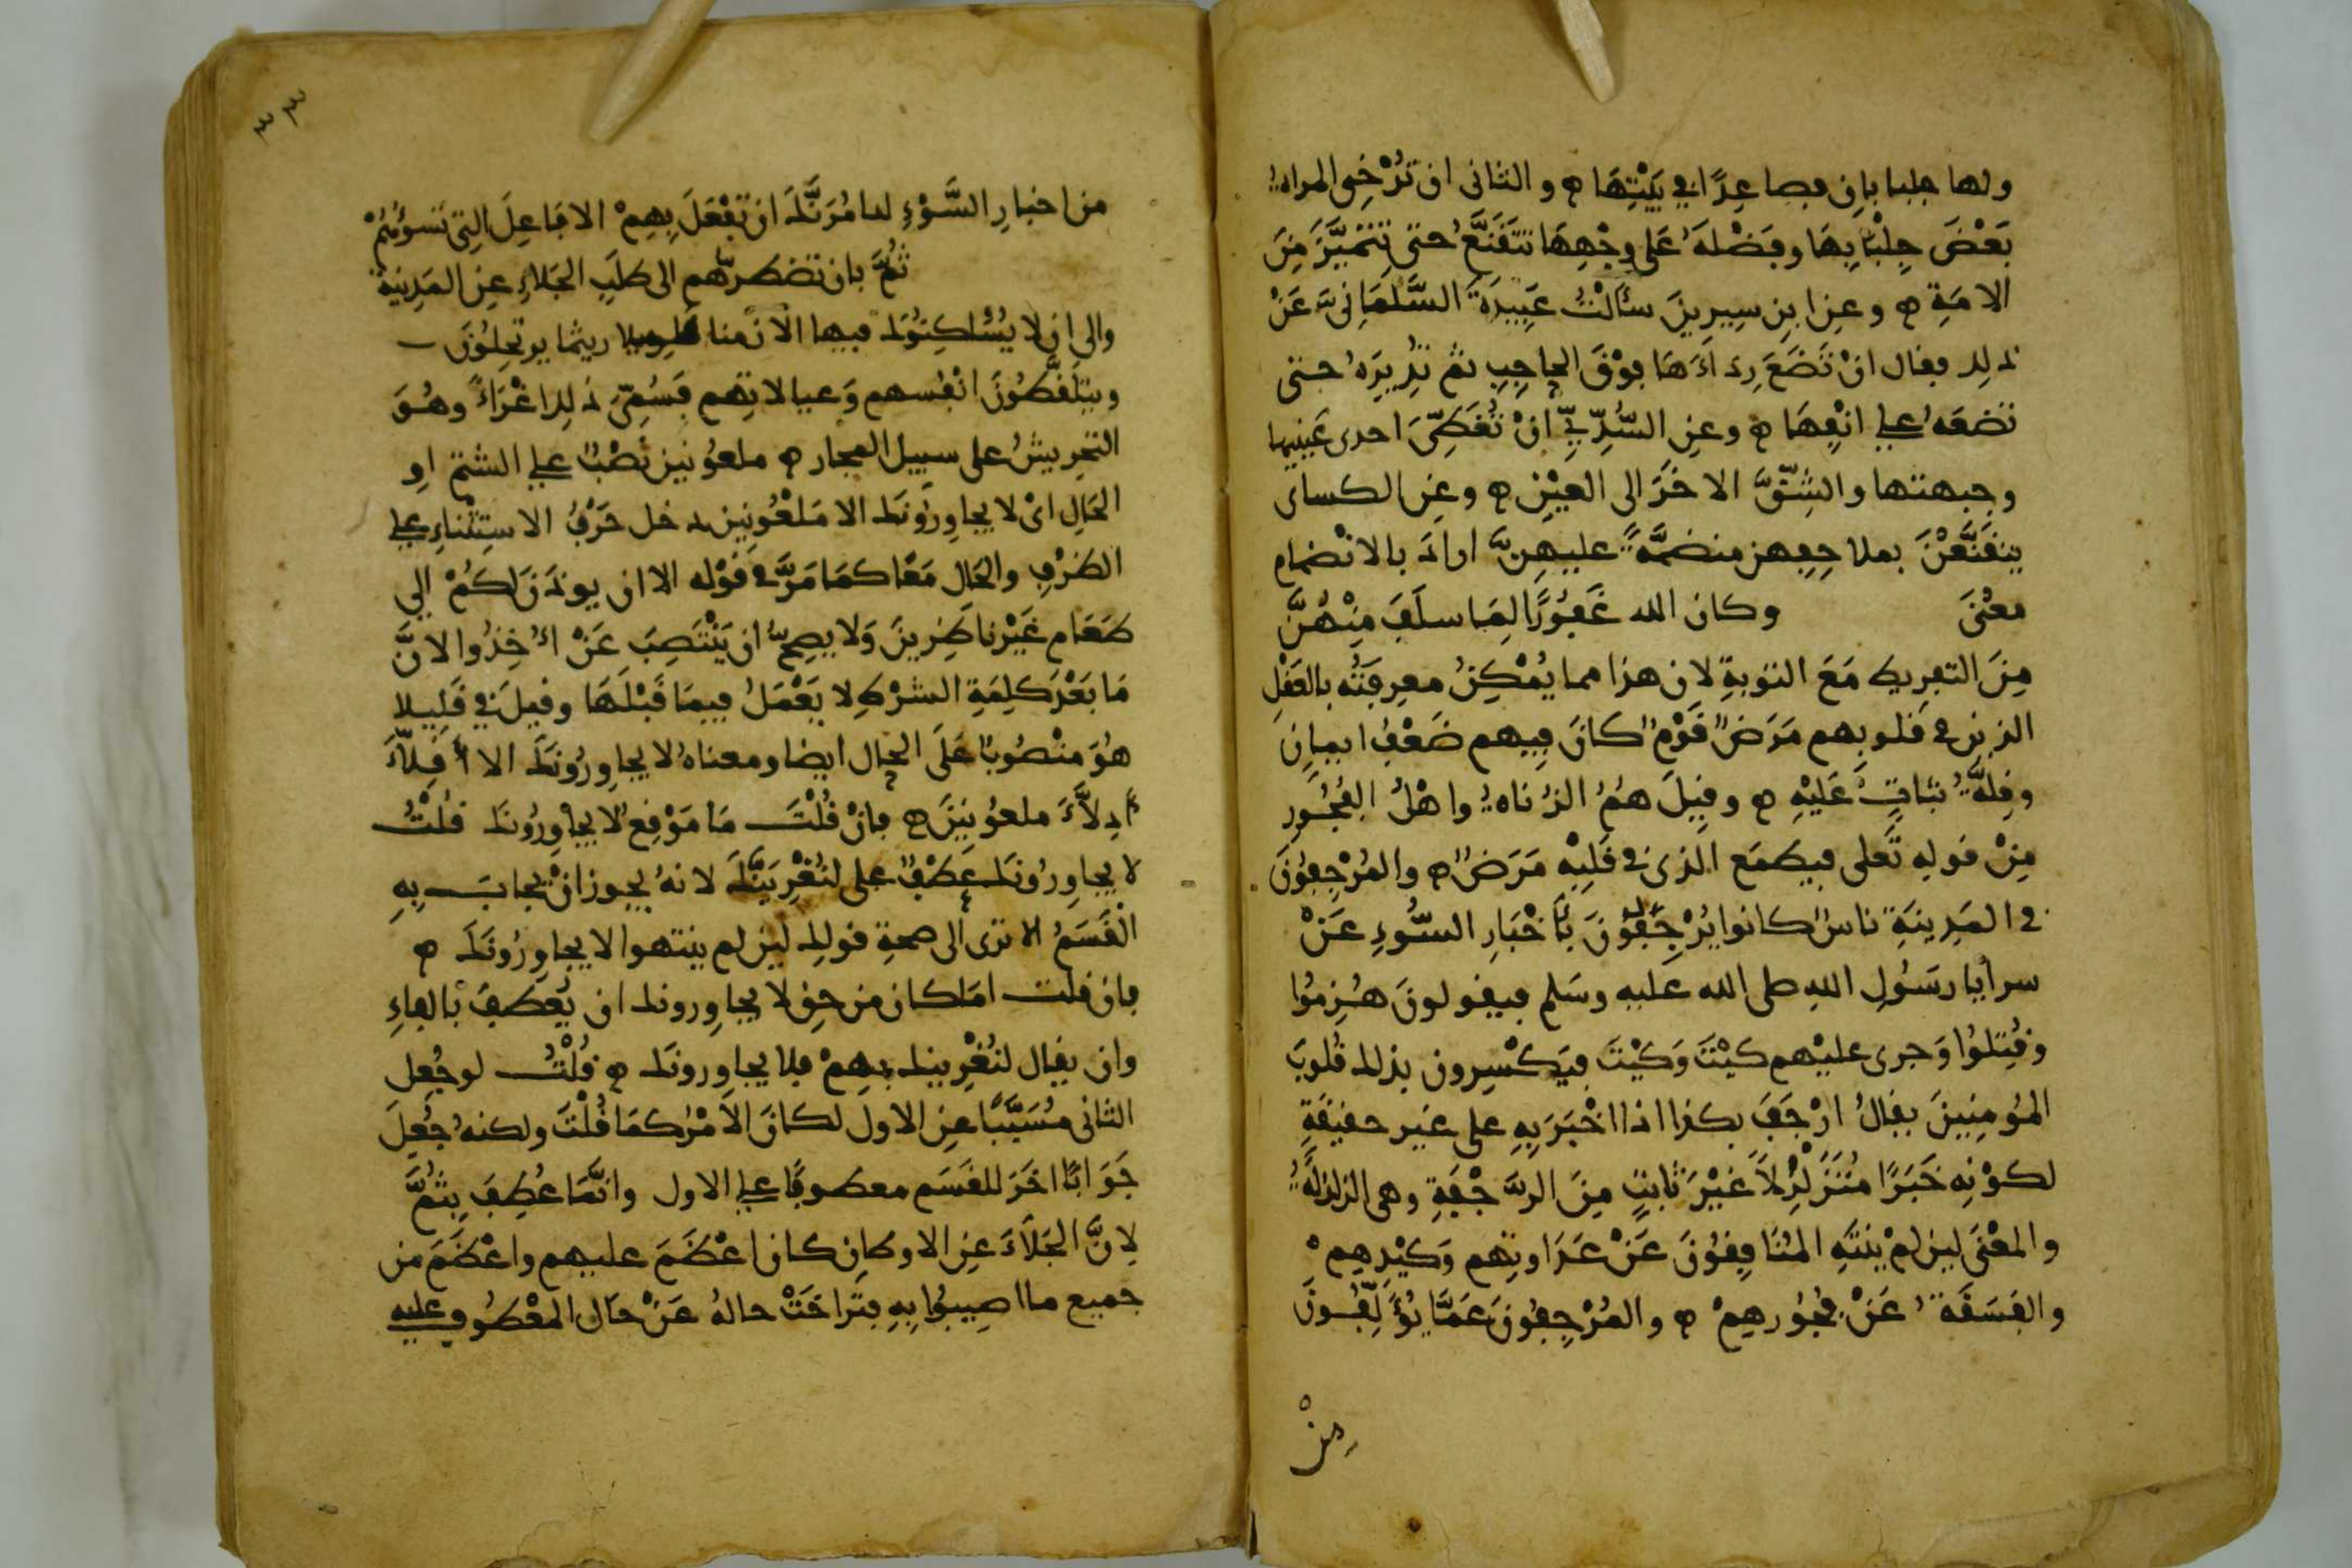 ولها جلبابان فصاعِدًا في بَيْتِهَا ۞ والثاني ان تُرْخِي المراة
بَعْضَ جِلْبَابِهَا وفَضْلَهُ عَلى وجْهِهَا تَتَقَنَّعُ حتى تَتَمَيَّزَ مِنَ
الامَةِ ۞ وعن ابن سِيرِينَ سأَلْتُ عَبِيدَةَ السَّلْمَانِيَّ عَنْ
ذلك فقال انْ تَضَعَ رِدَاءَهَا فوْقَ الحاجِبِ ثم تُدِيرَهُ حتى
تضعَهُ على انْفِهَا ۞ وعن السُّدِّيِّ انْ تُغَطِّيَ احدى عَيْنيها
وجبهتها والشِّقَّ الاخَرَ الى العَيْنِ ۞ وعن الكساي
يتقَنَّعْنَ بملاحِفِهن منضمَّةً عليهنَّ ارادَ بالانْضمام
معْنَى وكان الله غَفُورًا لِمَا سلَفَ مِنْهُنَّ
مِنَ التفريط مَعَ التوبةِ لان هذا مما يُمْكِنُ معرِفَتُه بالعَقْلِ
الذين في قلوبهم مَرَضٌ قَوْمٌ كانَ فِيهم ضَعْفُ ايمانٍ
وقِلَّةُ ثباتٍ عَلَيْهِ ۞ وقِيلَ هُمُ الزُناةُ واهْلُ الفُجُورِ
مِنْ قوله تَعلى فيطمَع الذي في قَلبِهِ مَرَضٌ ۞ والمُرْجِفُونَ
في المَدِينَةِ ناسٌ كانوا يُرْجِفُونَ بأَخْبَارِ السُّوءِ عَنْ
سرايا رسَولِ اللهِ صلى الله عليه وسَلم فيقولونَ هُزِمُوا
وقُتِلُوا وَجرى عليْهم كيْتَ وَكَيْتَ فيَكْسِرون بذلك قُلوبَ
المُومِنِينَ يقالُ ارْجَفَ بكذا اذا اخْبَرَ بِهِ على غير حقيقَةٍ
لكوْنِه خَبَرًا مُتَزَلْزِلاً غَيْرَ ثابِتٍ مِنَ الرَّجْفَةِ وهي الزلزلَةُ
والمعْنَى لين لمْ ينتَهِ المُنَافِقونَ عَنْ عَدَاوتِهم وَكيْدِهِمْ
والفَسَقَةُ عَنْ فجُورِهِمْ ۞ والمُرْجِفونَ عَمَّا يُؤَلِّفُونَ
مِنْ
٣٣
من اخبارِ السَّوْءِ لنامُرَنَّكَ ان تَفْعَلَ بِهِمْ الافَاعِلَ التي تَسوُهُمْ
ثُمَّ بان تضطرَّهم الى طلَبِ الجَلاءِ عنِ المَدِينة
والى ان لا يُسْاكِنُوكَ فيها الا زمنا قليلا ريثما يرتحِلُونَ
ويتلَقَّطُونَ انْفُسهم وَعيالاتِهم فَسُمِّيَ ذلك اغْرَاءً وهُوَ
التحرِيشُ على سبيل المجاز ۞ ملعُونين نَصْبٌ على الشتم او
الحَالِ ايْ لا يجاوِرُونَك الا مَلْعُونِين دخل حَرْفُ الاستِثْناءِ على
الظرْفِ والحَال مَعًا كمَا مَرَّ في قوْله الا ان يوذَنَ لكُمْ الى
طعَام غَيْرَ ناظِرِينَ وَلا يصِحُّ ان يَنْتَصِبَ عَنْ اُخِذُوا لانَّ
مَا بَعْدَ كلِمَةِ الشرْطِ لا يَعْمَلُ فِيمَا قَبْلَهَا وقيلَ في قَلِيلا
هُوَ منْصُوبٌ عَلَى الحال ايضا ومعناهُ لا يجاوِرُونَكَ الا اقِلَّاءَ
اَذِلَّاءَ ملعُونِينَ ۞ فانْ قُلْتَ مَا مَوْقِعُ لا يجاوِرُونَك قُلْتُ
لا يجاوِرُونَك عَطْفٌ على لنُغْرِيَنَّكَ لانهُ يجوز انْ يجابَ بِهِ
الْقَسَمُ الا ترى الى صحةِ قولك لين لم ينتهوا لا يجاوِرُونَكَ ۞
فان قلتَ امَا كان من حقِ لا يجاوِرونك ان يُعطفَ بالفاءِ
وان يقال لنُغْرِينك بهِمْ فلا يجاوِرونَك ۞ قُلْتُ لو جُعِلَ
الثاني مُسَبَّبًا عنِ الاول لكانَ الاَمْرُ كمَا قُلْتَ ولكنهُ جُعِلَ
جَوَابًا اخَرَ للقَسَم معطوفًا على الاول وانَّمَا عُطِفَ بِثُمَّ
لانَّ الجَلاَءَ عنِ الاوطانِ كان اعْظَمَ عليهم واعْظَمَ من
جميع ما اصِيبُوا بِهِ فتَراخَتْ حالهُ عَنْ حَال المعْطُوف عليه